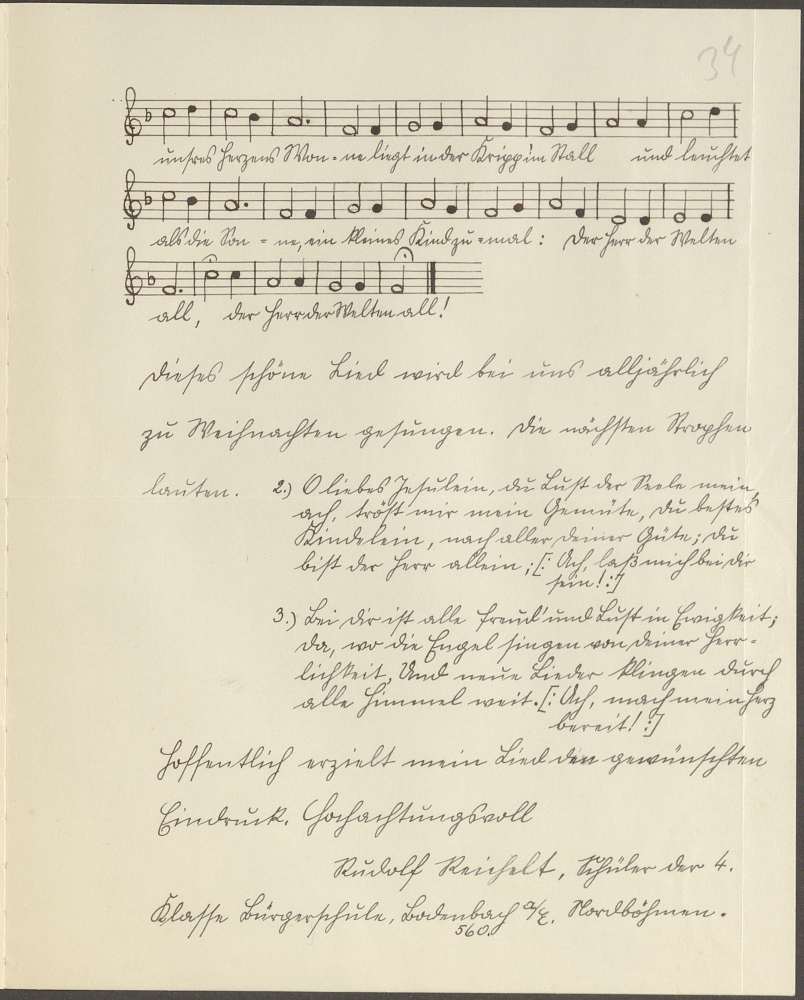 34
unsres Herzens Won-ne liegt in der Kripp' im Stall und leuchtet
als die Son-ne, ein kleines Kind zu-mal: Der Herr der Welten
all, der Herr der Welten all!
Dieses schöne Lied wird bei uns alljährlich
zu Weihnachten gesungen. Die nächsten Strophen
lauten. 2.) O liebes Jesulein, du Lust der Seele mein,
ach, tröst mir mein Gemüte, du bestes
Kindelein, nach aller deiner Güte; du
bist der Herr allein; [: Ach, laß mich bei dir
sein! :]
3.) Bei dir ist alle Freud' und Lust in Ewigkeit;
da, wo die Engel singen von deiner Herr-
lichkeit, Und neue Lieder klingen durch
alle Himmel weit. [: Ach, mach mein Herz
bereit! :]
Hoffentlich erzielt mein Lied den gewünschten
Eindruck. Hochachtungsvoll
Rudolf Reichelt, Schüler der 4.
Klasse Bürgerschule, Bodenbach a/E. Nordböhmen.
560.